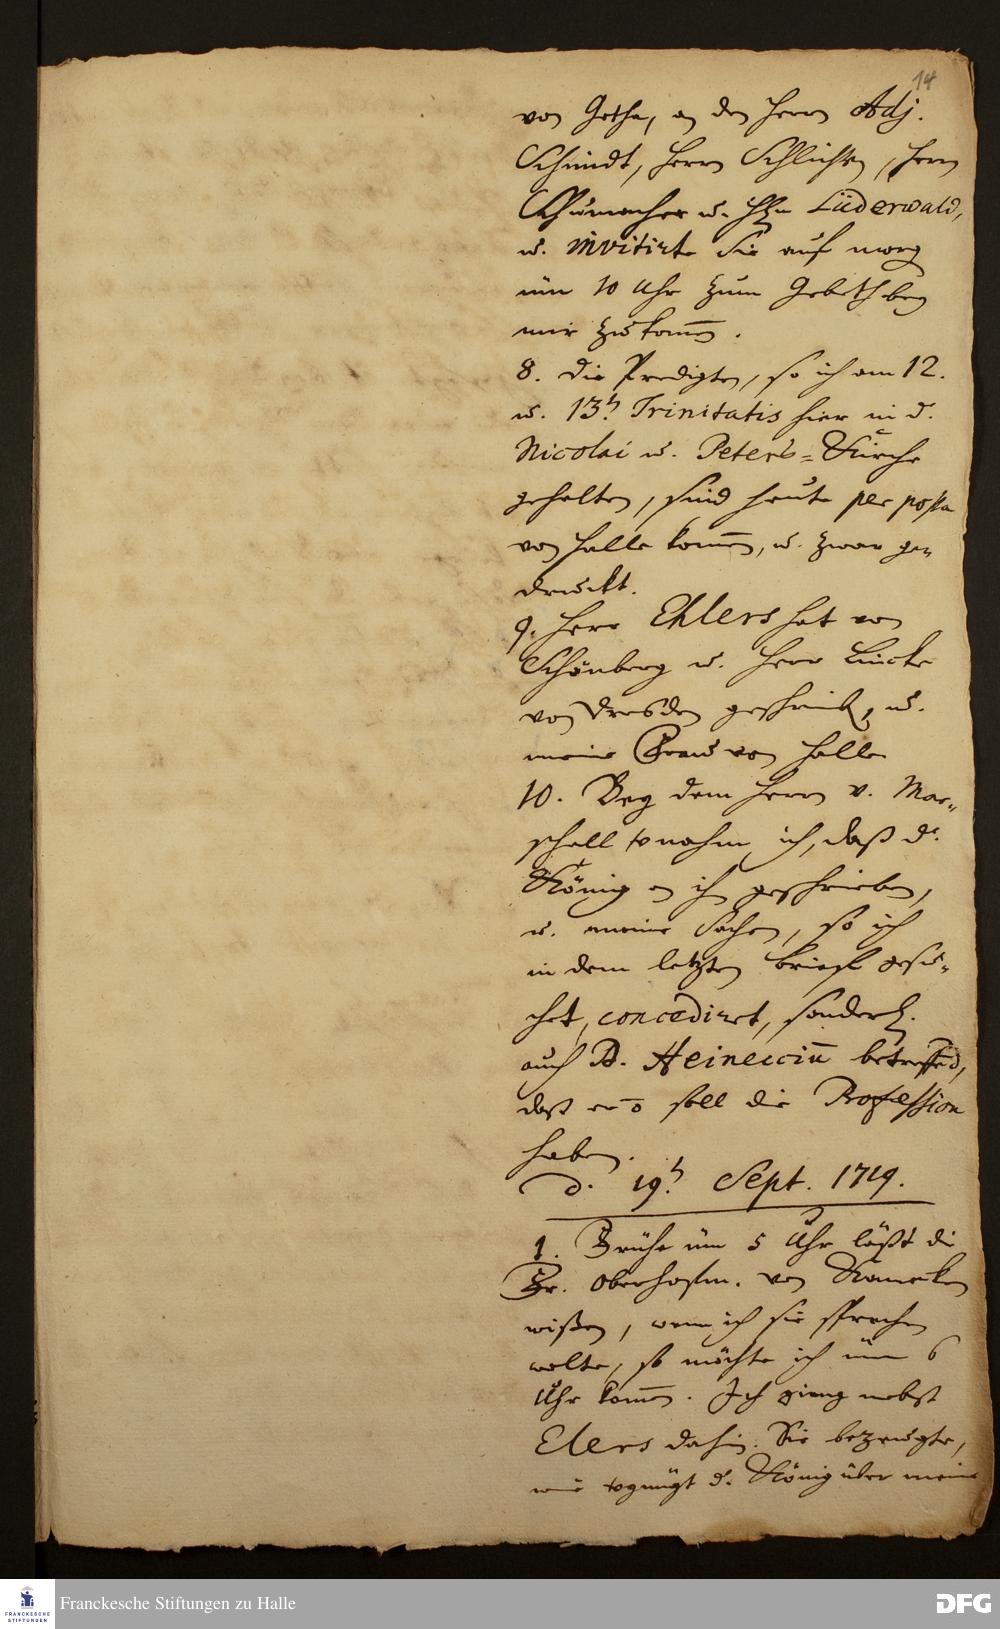 14
von Gotha, an den Herrn Adj.
Schmidt, Herrn Schlichten, Herrn
Schumacher u. H. Lüderwald,
u. invitirte Sie auf morg
üm 10 Uhr zum Gebeth bey
mir zukom̄.
8. die Predigten, so ich am 12.
u. 13.t Trinitatis hier in d.
Nicolai u. Peters-Kirche
gehalten, sind heute per posta
von Halle kom̄en, u. zwar ge-
druckt.
9. Herr Ehlers hat von
Schönberg u. Herr Lincke
von Dresden geschrieb., u.
meine Frau von Halle
10. Bey dem Herrn v. Mar-
schall vernahm ich, daß d.
König an ihn geschrieben,
u. meine Sachen, so ich
in dem letzten brieff gesu-
chet, concediret, sonderl.
auch D. Heineccium betreffend,
daß er die Profession
haben.
d. 19.t Sept. 1719.
1. Frühe üm 5 Uhr läßt die
Fr. Oberhofm. von Kamecken
wißen, wenn ich sie sprechen
wolte, so möchte ich üm 6
Uhr kom̄en. Ich gieng nebst
Elers dahin. Sie bezeugte,
wie vergnügt d. König über mein
Franckesche Stiftungen zu Halle
FRANCKESCHE
STIFTUNGEN
DFG